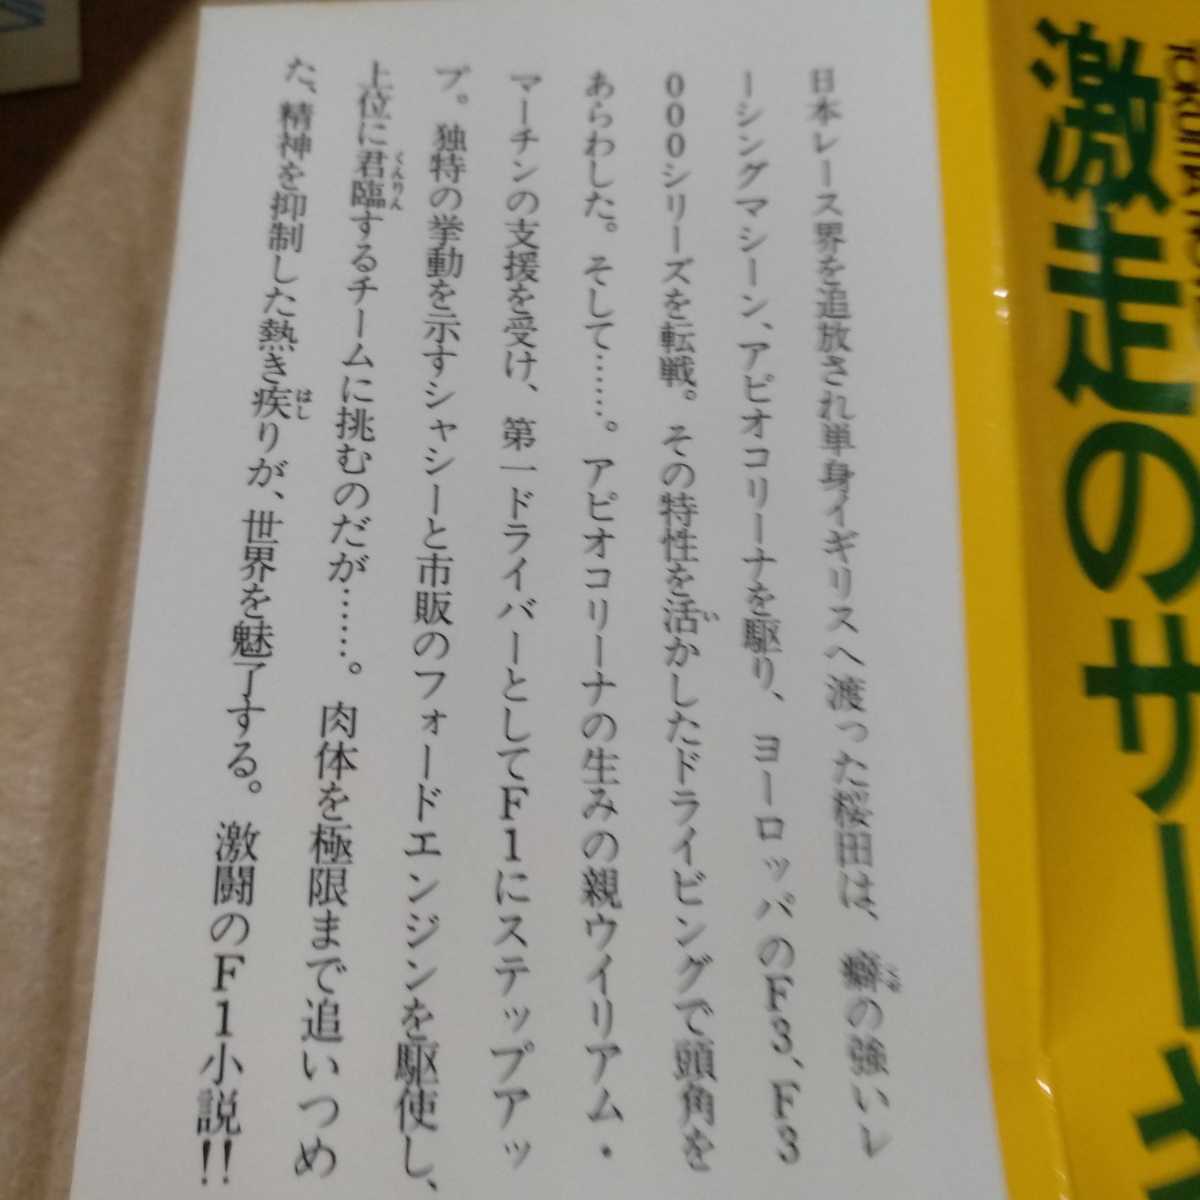 日本レース界を追放され単身イギリスへ渡った桜田は、癖の強いレ
ーシングマシーン、アピオコリーナを駆り、ヨーロッパのF3、F3
000シリーズを転戦。その特性を活かしたドライビングで頭角を
あらわした。そして……。アピオコリーナの生みの親ウイリアム・
マーチンの支援を受け、第一ドライバーとしてF1にステップアッ
プ。独特の挙動を示すシャシーと市販のフォードエンジンを駆使し、
上位に君臨するチームに挑むのだが……。肉体を極限まで追いつめ
た、精神を抑制した熱き疾りが、世界を魅了する。激闘のF1小説!!
激走のサーキ